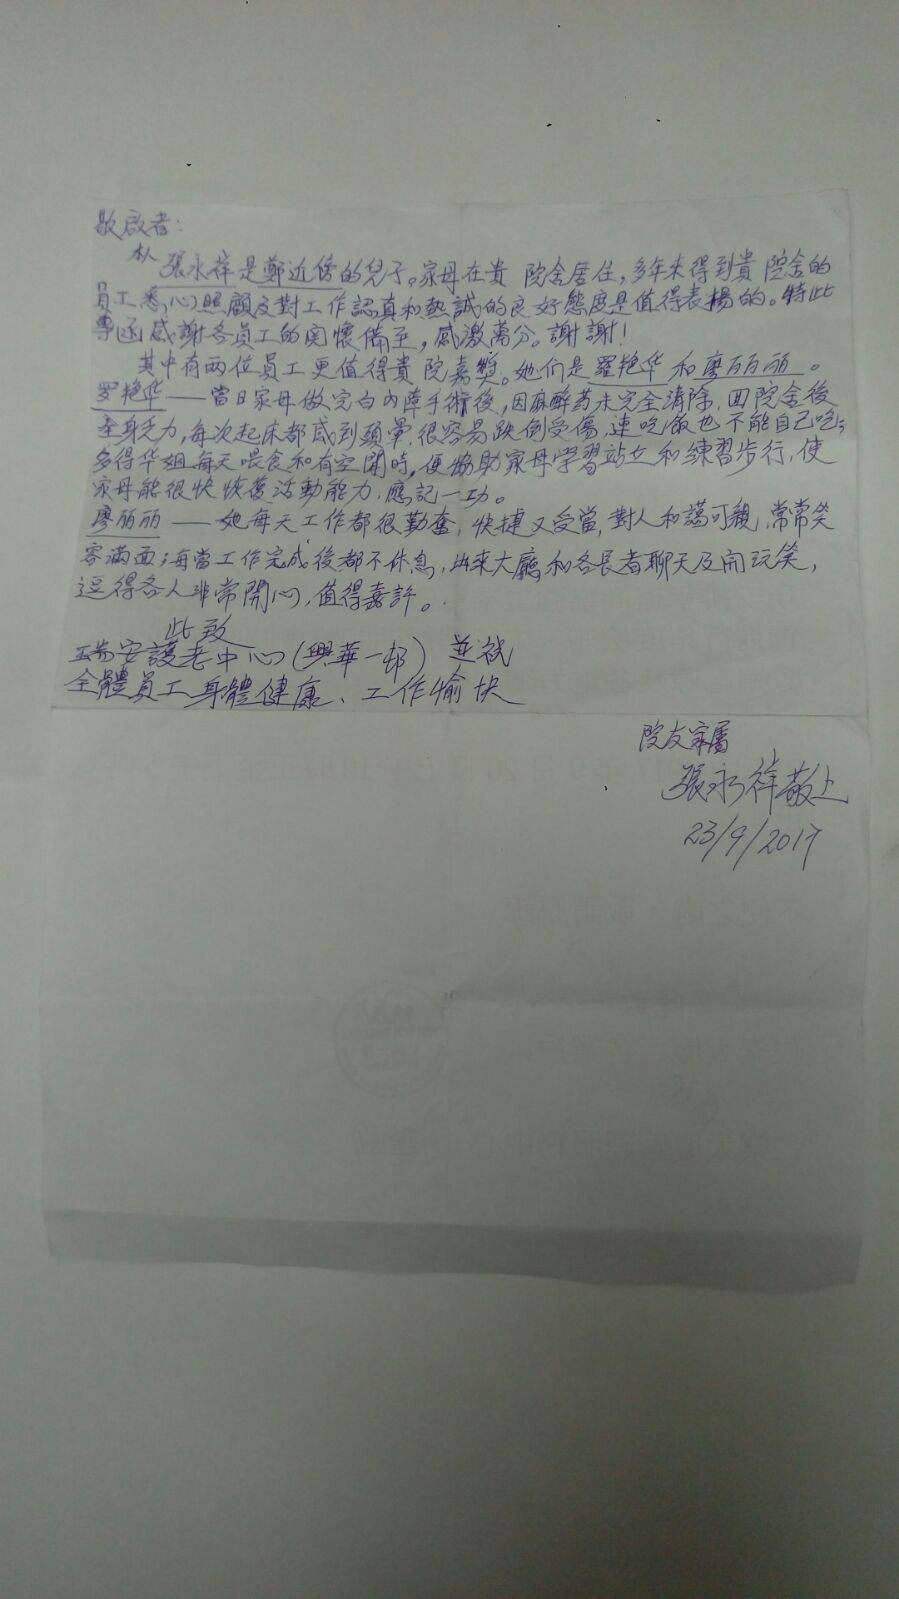 敬啟者：
本人張永祥是鄭近傍的兒子。家母在貴 院舍居住，多年來得到貴 院舍的
員工悉心照顧及對工作認真和熱誠的良好態度是值得表揚的。特此
專函感謝各員工的関懷備至，感激萬分。謝謝！
其中有兩位員工更值得貴 院嘉獎。她们是羅艳华 和廖丽丽 。
罗艳华——當日家母做完白內障手術後，因麻醉药未完全清除，回院舍後
全身乏力，每次起床都感到頭暈，很容易跌倒受傷，連吃飯也不能自己吃；
多得华姐每天喂食和有空閒時，便協助家母学習站立和練習步行，使
家母能很快恢復活動能力，應記一功。
廖丽丽——她每天工作都很勤奮，快捷又妥當，對人和藹可親，常常笑
容滿面；每當工作完成後都不休息，出來大廳和各長者聊天及開玩笑，
逗得各人非常開心，值得嘉許。
此致
瑞安護老中心(興華一邨) 並祝
全體員工身體健康、工作愉快
院友家屬
張永祥敬上
23/9/2017